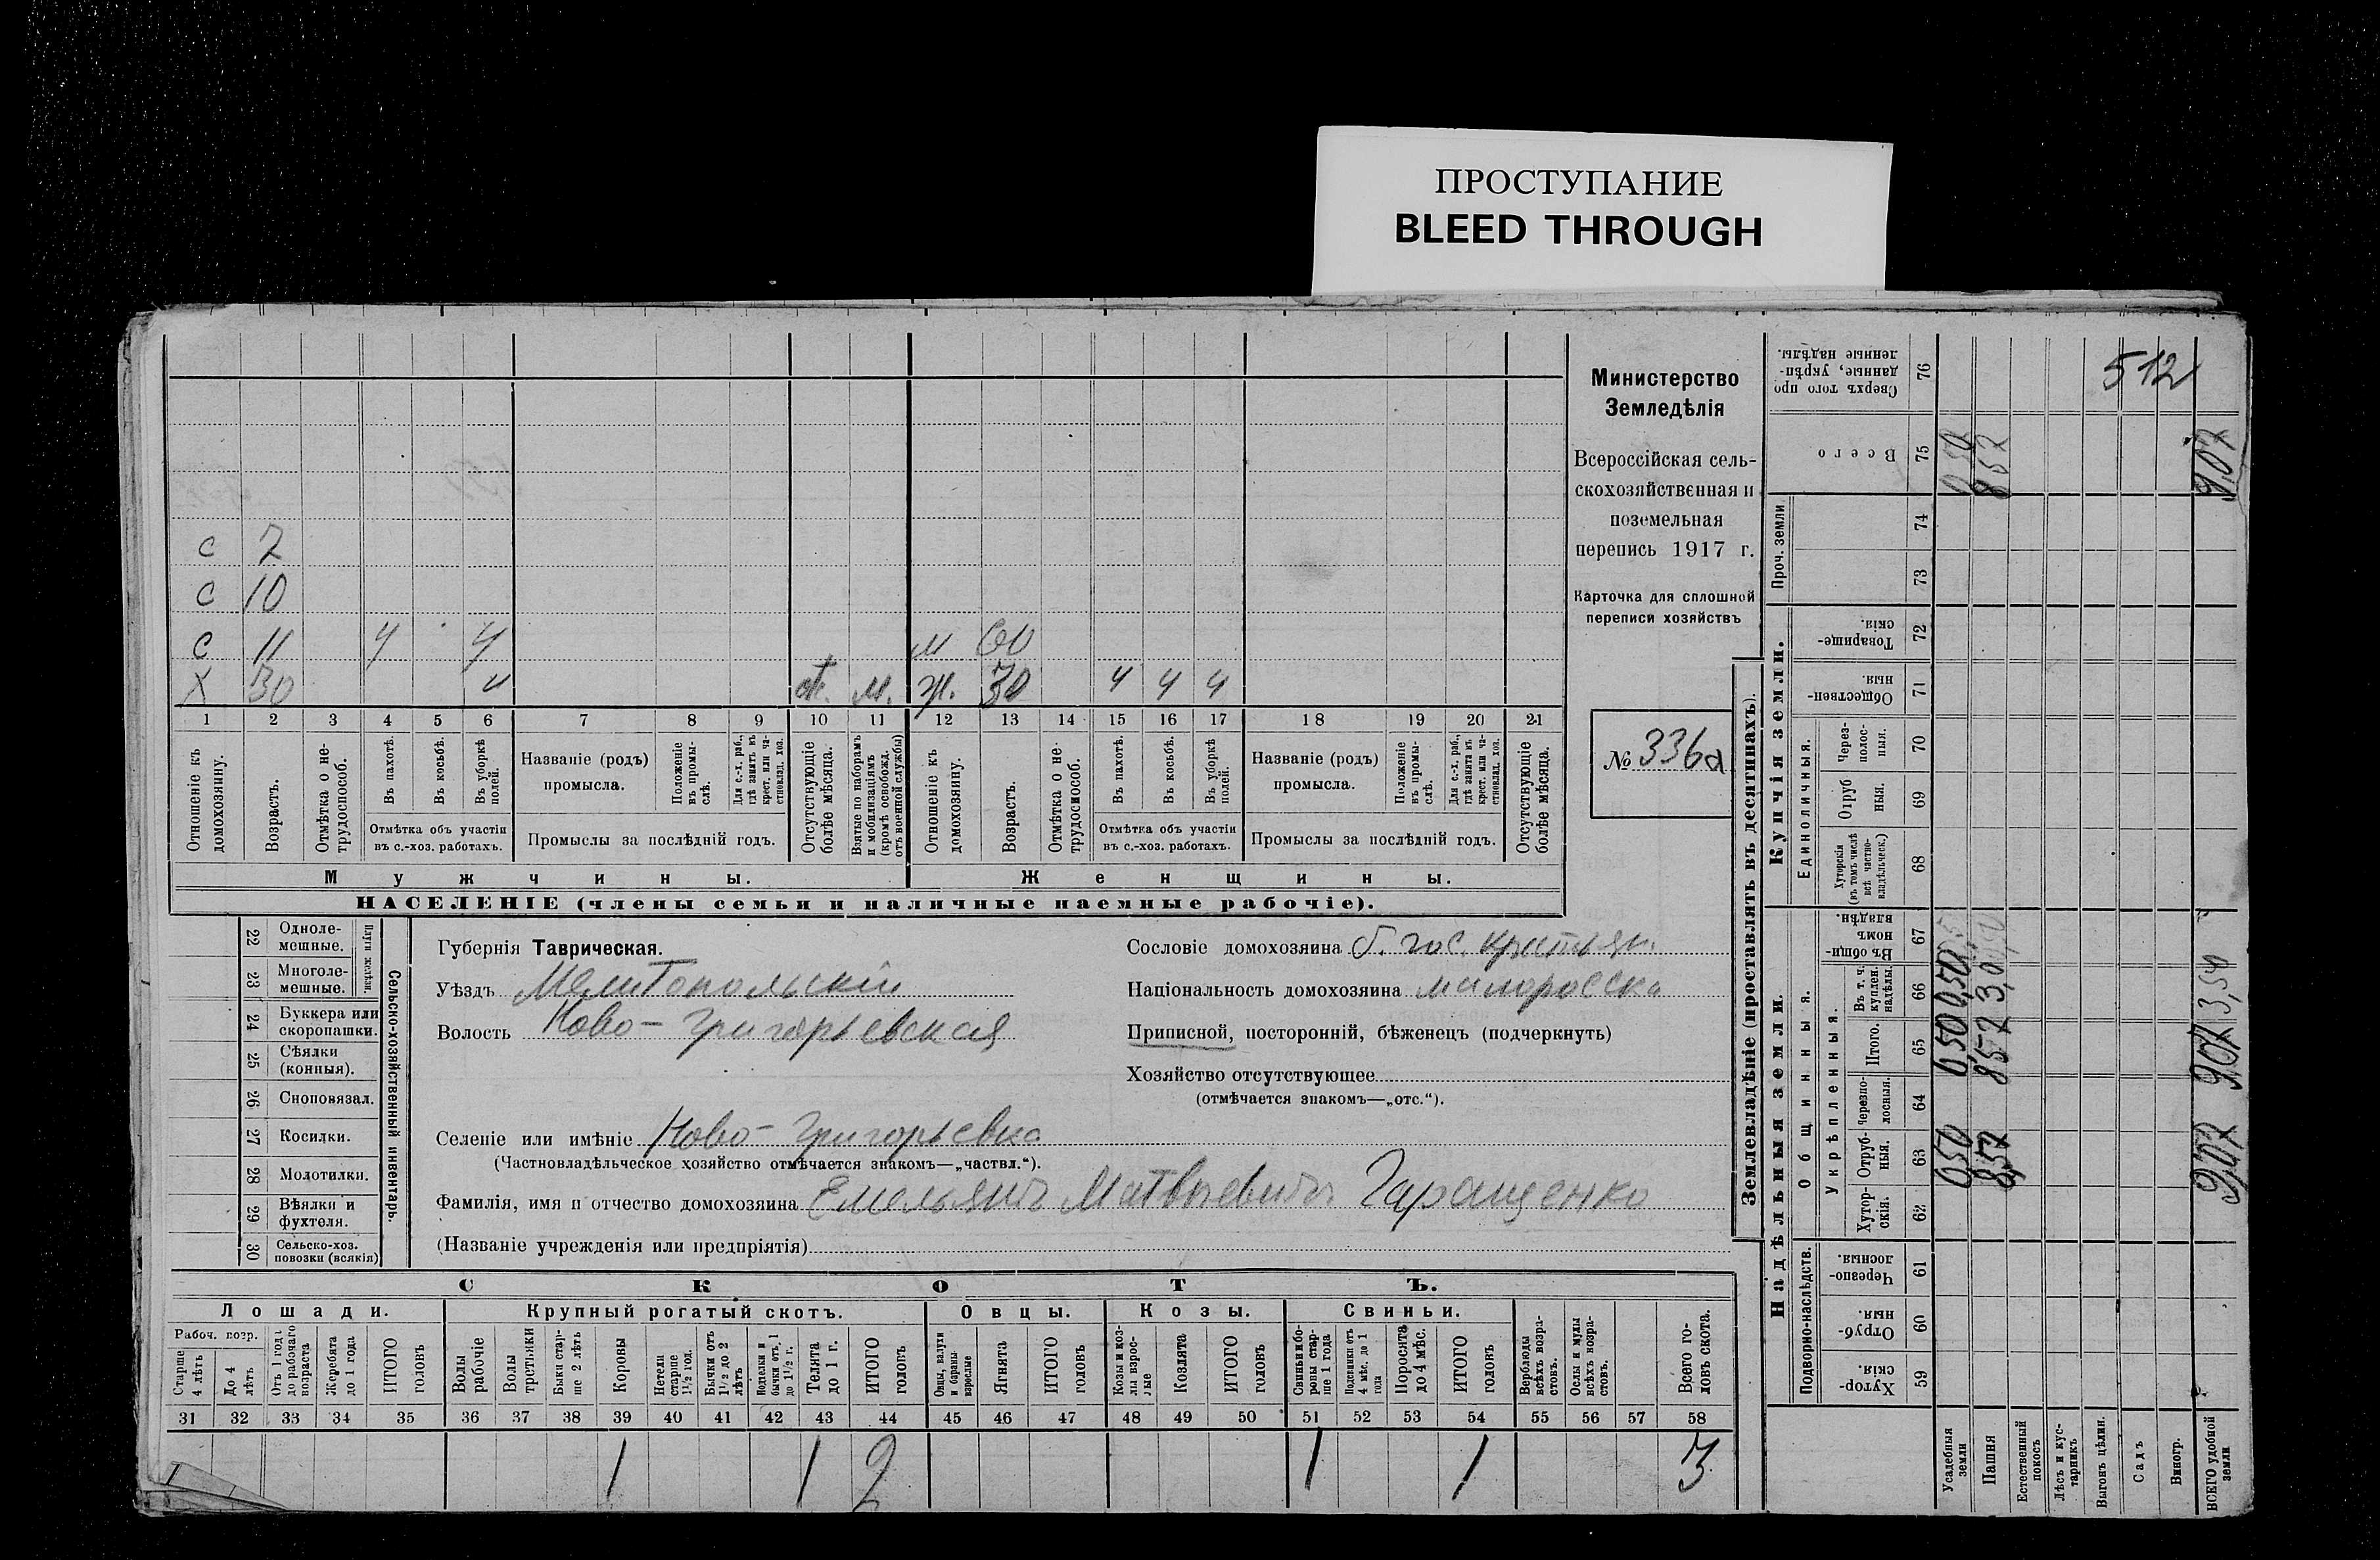 ПРОСТУПАНИЕ
BLEED THROUGH
с 7
с 10
с 11 ч ч
м 60
Х 30 ч от. м. ж. 30 ч ч ч
1 2 3 4 5 6 7 8 9 10 11 12 13 14 15 16 17 18 19 20 21
Отношеніе къ домохозяину.
Возрастъ.
Отмѣтка о не-
трудоспособ.
Въ пахотѣ.
Въ косьбѣ.
Въ уборкѣ полей.
Отмѣтка объ участіи
въ с.-хоз. работахъ.
Названіе (родъ)
промысла.
Положеніе въ промы-
слѣ.
Для с.-х. раб., гдѣ занятъ въ крест. или ча-
стновлад. хоз.
Промыслы за послѣдній годъ.
Отсутствующіе болѣе мѣсяца.
Взятые по наборамъ и мобилизаціямъ (кромѣ освобожд. отъ военной службы)
Отношеніе къ домохозяину.
Возрастъ.
Отмѣтка о не-
трудоспособ.
Въ пахотѣ.
Въ косьбѣ.
Въ уборкѣ полей.
Отмѣтка объ участіи
въ с.-хоз. работахъ.
Названіе (родъ)
промысла.
Положеніе въ промы-
слѣ.
Для с.-х. раб., гдѣ занята въ крест. или ча-
стновлад. хоз.
Промыслы за послѣдній годъ.
Отсутствующіе болѣе мѣсяца.
Мужчины. Женщины.
НАСЕЛЕНІЕ (члены семьи и наличные наемные рабочіе).
Министерство
Земледѣлія
Всероссійская сель-
скохозяйственная и
поземельная
перепись 1917 г.
Карточка для сплошной
переписи хозяйствъ
№ 336а
22 Одноле-
мешные.
23 Многоле-
мешные.
Плуги желѣзн.
24 Буккера или
скоропашки.
25 Сѣялки
(конныя).
26 Сноповязал.
27 Косилки.
28 Молотилки.
29 Вѣялки и
фухтеля.
30 Сельско-хоз.
повозки (всякія)
Сельско-хозяйственный инвентарь.
Губернія Таврическая.
Уѣздъ Мелитопольскій
Волость Ново-Григорьевская
Селеніе или имѣніе Ново-Григорьевка
(Частновладѣльческое хозяйство отмѣчается знакомъ—„частвл.“).
Фамилія, имя и отчество домохозяина Емельянъ Матвѣевичъ Гаращенко
(Названіе учрежденія или предпріятія)
Сословіе домохозяина б. гос. крестьян.
Національность домохозяина малоросска
Приписной, посторонній, бѣженецъ (подчеркнуть)
Хозяйство отсутствующее
(отмѣчается знакомъ—„отс.“).
СКОТЪ.
Лошади. Крупный рогатый скотъ. Овцы. Козы. Свиньи.
Рабоч. возр.
Старше 4 лѣтъ
До 4 лѣтъ
Отъ 1 года до рабочаго возраста
Жеребята до 1 года
ИТОГО головъ
Волы рабочіе
Волы третьяки
Быки стар-
ше 2 лѣтъ
Коровы
Нетели старше 1½ год.
Бычки отъ 1½ до 2 лѣтъ
Подтелки и бычки отъ 1 до 1½ г.
Телята до 1 г.
ИТОГО головъ
Овцы, валухи и бараны взрослые
Ягнята
ИТОГО головъ
Козы и коз-
лы взрос-
лые
Козлята
ИТОГО головъ
Свиньи и бо-
ровы стар-
ше 1 года
Подсвинки отъ 4 мѣс. до 1 года
Поросята до 4 мѣс.
ИТОГО головъ
Верблюды всѣхъ возра-
стовъ.
Ослы и мулы всѣхъ возра-
стовъ.
Всего го-
ловъ скота.
31 32 33 34 35 36 37 38 39 40 41 42 43 44 45 46 47 48 49 50 51 52 53 54 55 56 57 58
1 1 2 1 1 3
Землевладѣніе (проставлять въ десятинахъ).
Купчія земли.
Надѣльныя земли.
Сверхъ того про-
данные, укрѣп-
ленные надѣлы.
76
512
Всего
75
0,50
8,57
9,07
Проч. земли
74
73
Товарище-
скія.
72
Обществен-
ныя.
71
Единоличныя.
Через-
полос-
ныя.
70
Отруб
ныя.
69
Хуторскія (въ томъ числѣ всѣ частно-
владѣльческ.)
68
Общинныя.
Въ общи
номъ
владѣн.
67
Укрѣпленныя.
Въ т. ч. куплен. надѣлы.
66
0,50
3,0
3,50
Итого.
65
0,50
8,57
9,07
Черезпо-
лосныя.
64
Отруб-
ныя.
63
0,50
8,57
9,07
Хутор-
скія.
62
Подворно-наслѣдств.
Черезпо-
лосныя.
61
Отруб-
ныя.
60
Хутор-
скія.
59
Усадебныя земли
Пашня
Естественный покосъ
Лѣсъ и кус-
тарникъ
Выгонъ цѣлин.
Садъ
Виногр.
ВСЕГО удобной земли